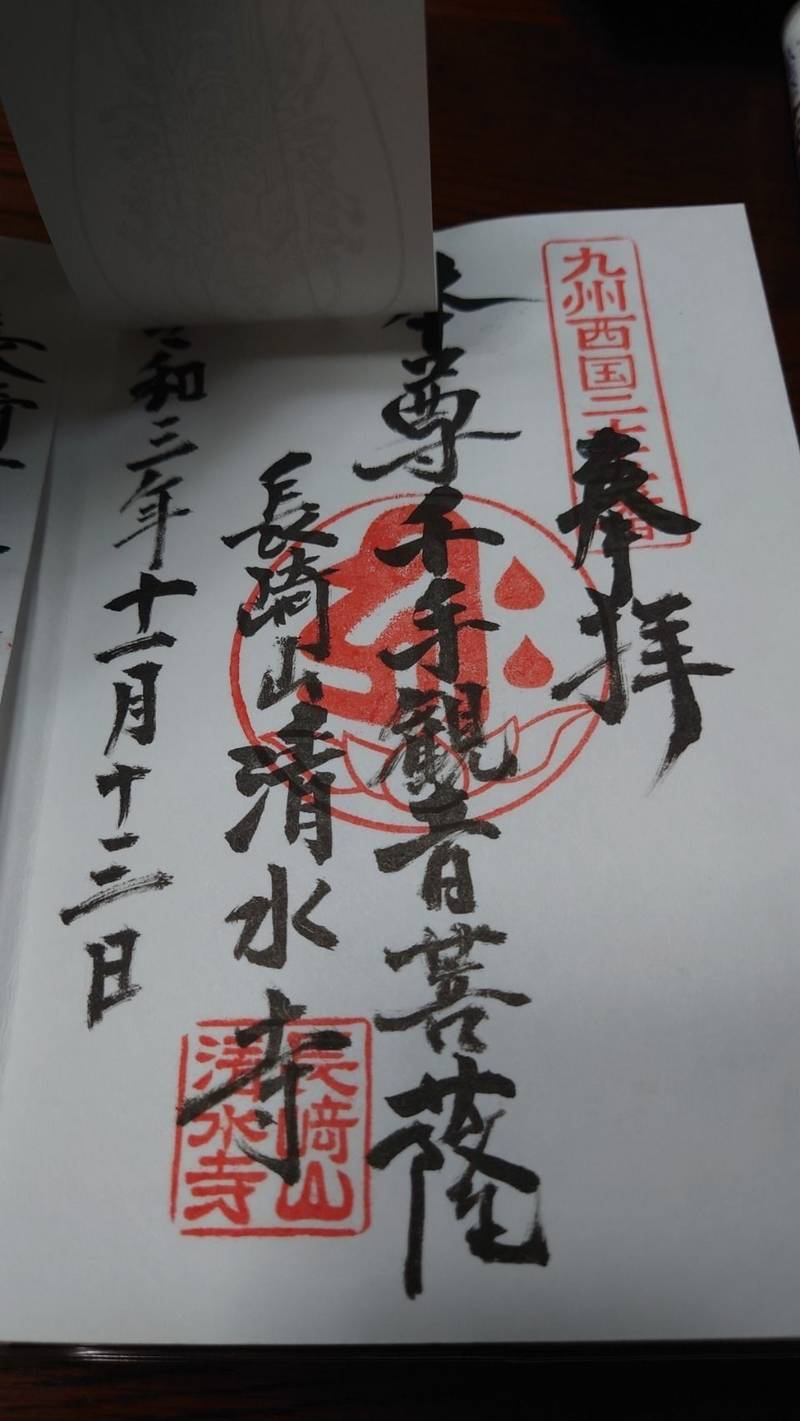 九州西国二十
奉拝
本尊千手観音菩薩
長崎山清水寺
令和三年十一月十三日
長﨑山
清水寺